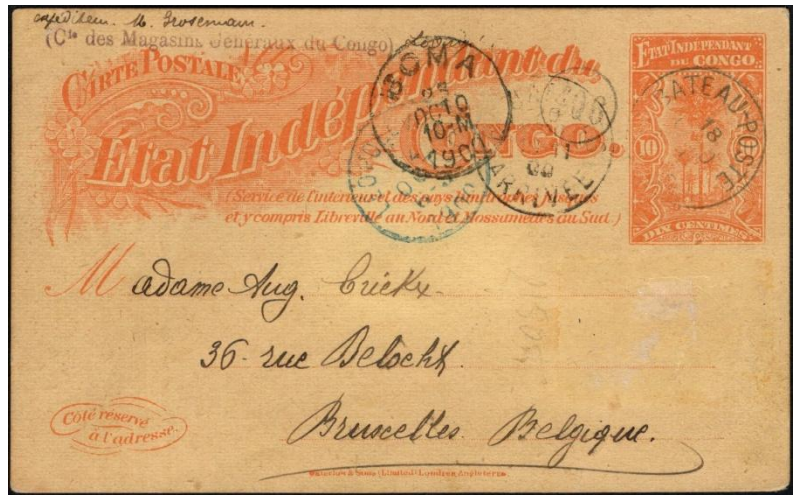 expéditeur. M. Grosemann.
(Cie des Magasins Généraux du Congo)
CARTE POSTALE
État Indépendant du
CONGO.
(Service de l'intérieur et des pays limitrophes jusques
et y compris Libreville au Nord & Mossamedes au Sud.)
ETAT INDÉPENDANT
DU CONGO
10
10
DIX CENTIMES
BOMA
25
OCTO
10-M
1900
ARRIVÉE
BATEAU-POSTE
18
Madame Aug. Crickx.
36 rue Belocht
Bruxelles Belgique.
Côté réservé
à l'adresse.
Waterlow & Sons (Limited) Londres, Angleterre.